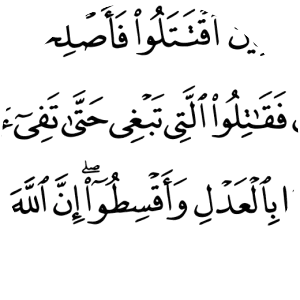 ٱقْتَتَلُوا۟ فَأَصْلِحُ
فَقَـٰتِلُوا۟ ٱلَّتِى تَبْغِى حَتَّىٰ تَفِىٓءَ
بِٱلْعَدْلِ وَأَقْسِطُوٓا۟ ۖ إِنَّ ٱللَّهَ